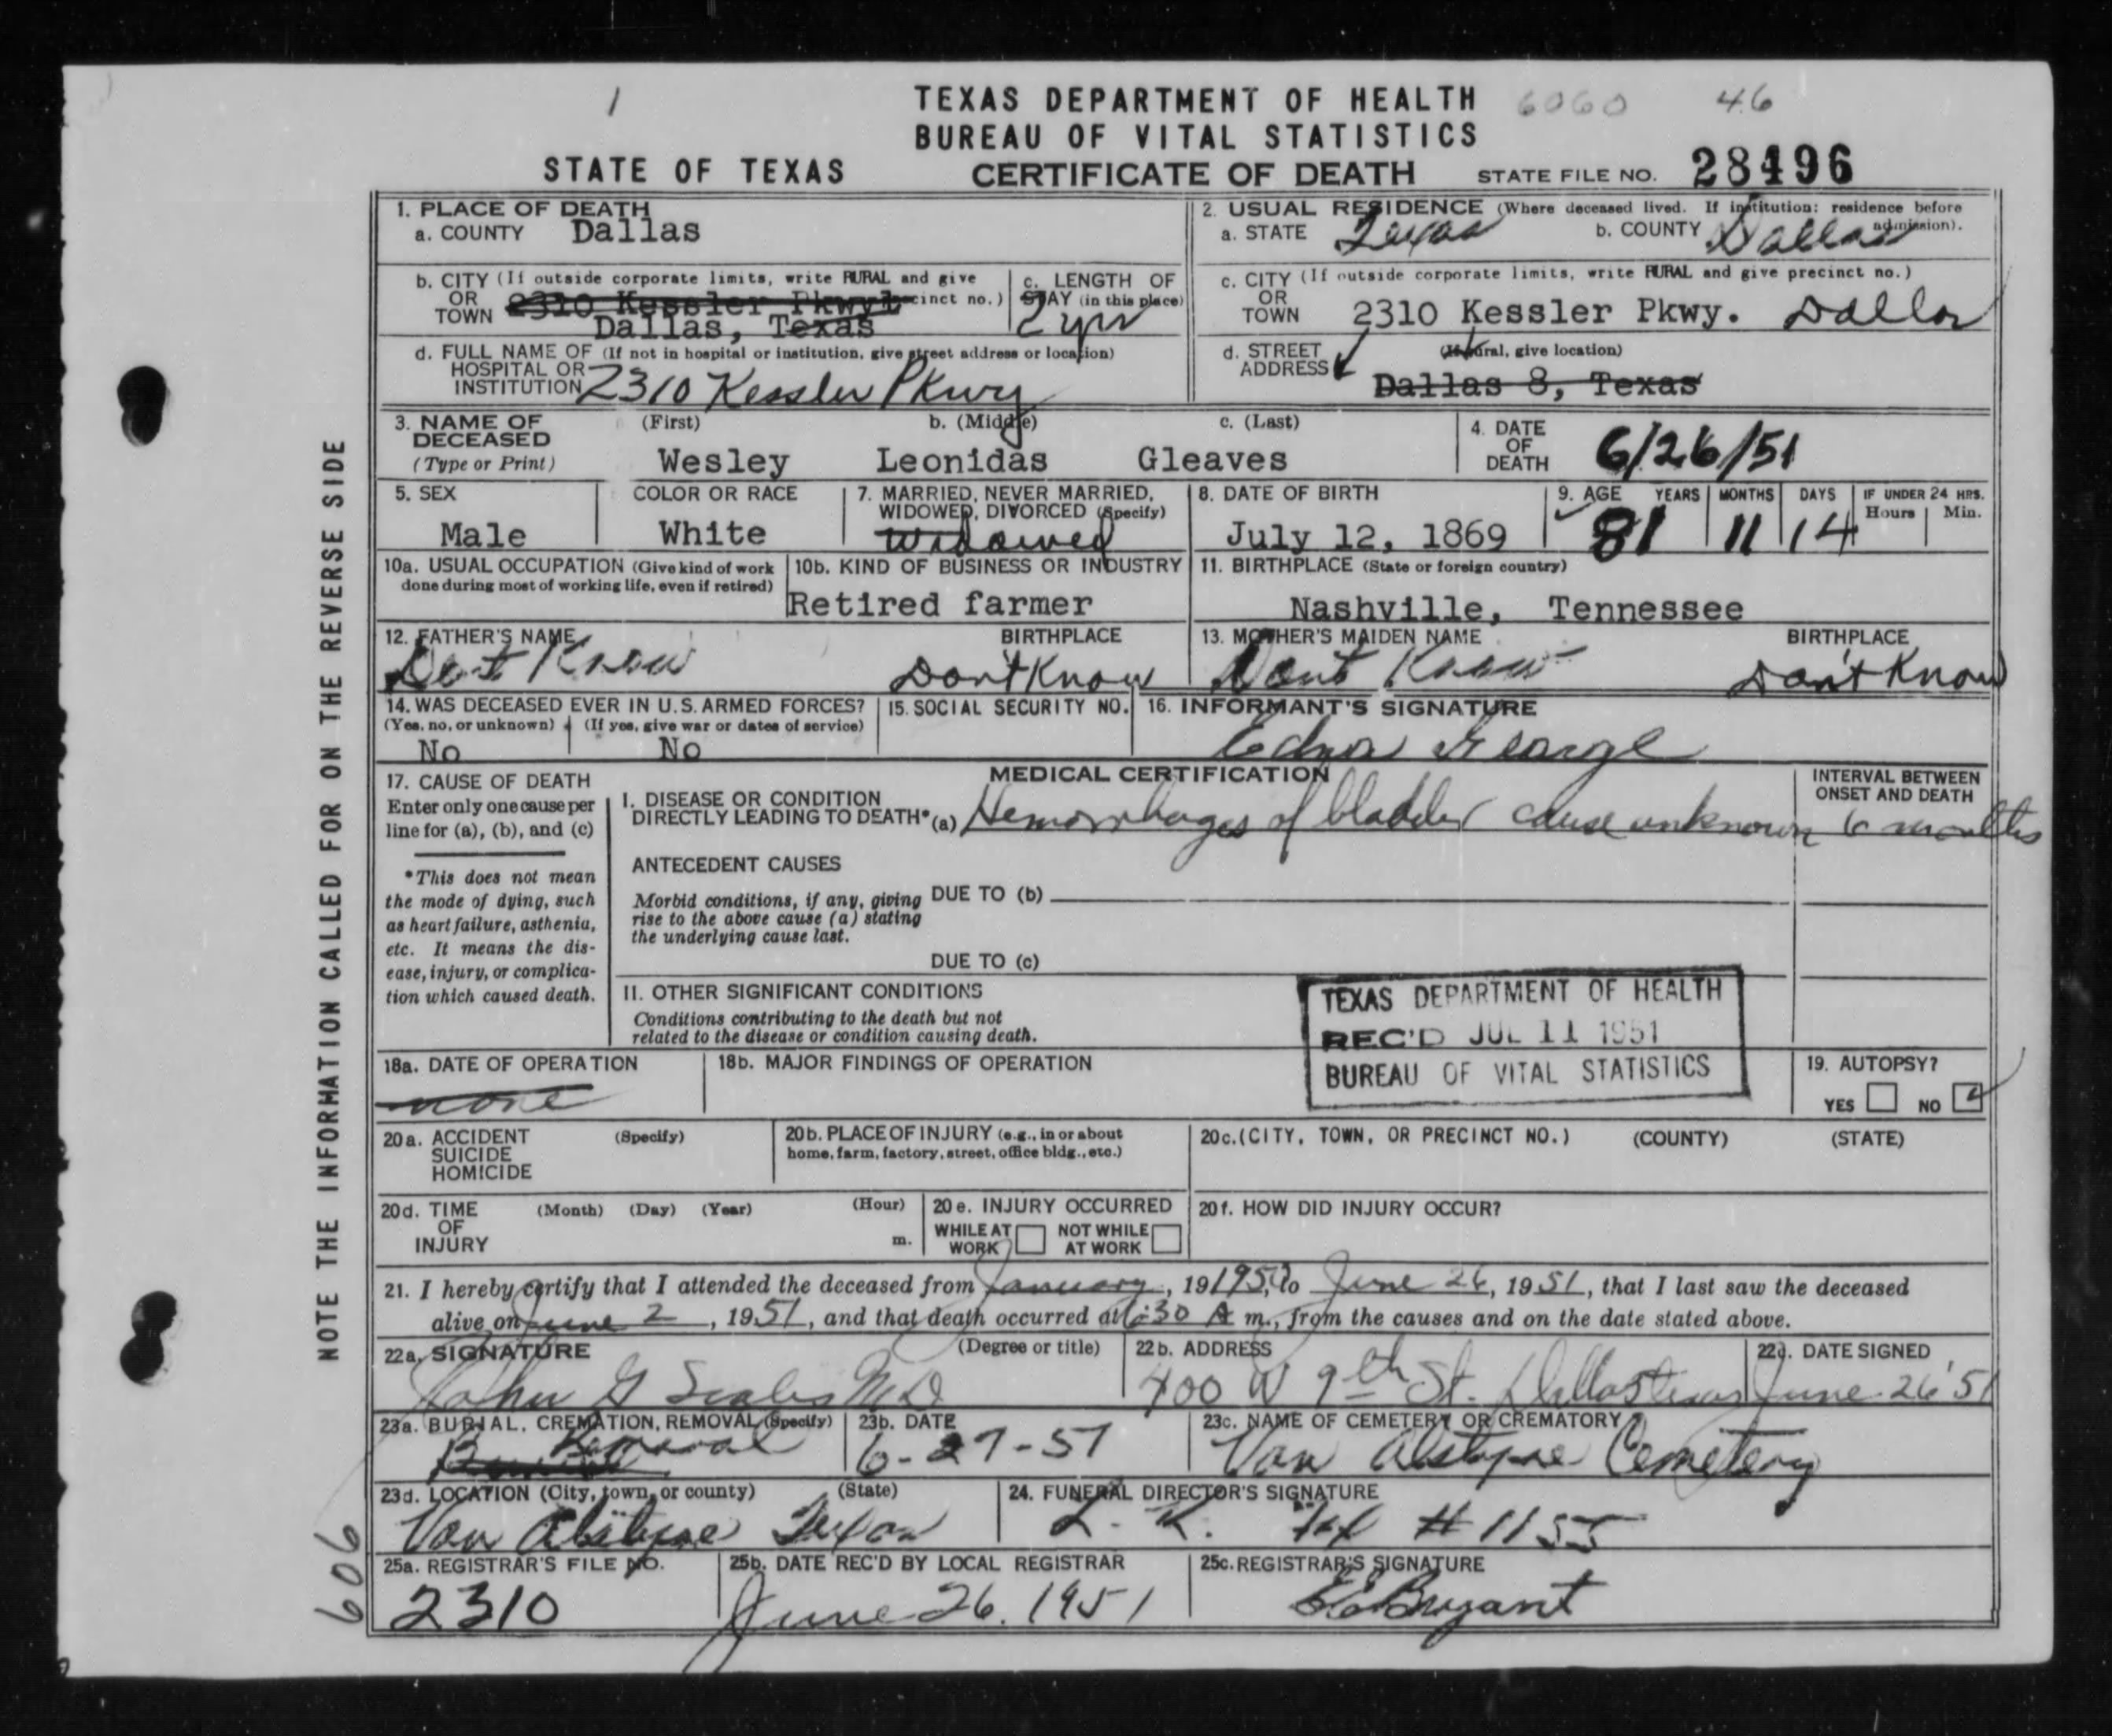 1
TEXAS DEPARTMENT OF HEALTH 6060 46
BUREAU OF VITAL STATISTICS
STATE OF TEXAS CERTIFICATE OF DEATH STATE FILE NO. 28496
1. PLACE OF DEATH
a. COUNTY Dallas
2. USUAL RESIDENCE (Where deceased lived. If institution: residence before admission).
a. STATE Texas b. COUNTY Dallas
b. CITY (If outside corporate limits, write RURAL and give precinct no.)
OR
TOWN 2310 Kessler Pkwy
Dallas, Texas
c. LENGTH OF
STAY (in this place)
2 yrs
c. CITY (If outside corporate limits, write RURAL and give precinct no.)
OR
TOWN 2310 Kessler Pkwy. Dallas
d. FULL NAME OF (If not in hospital or institution, give street address or location)
HOSPITAL OR
INSTITUTION 2310 Kessler Pkwy
d. STREET (If rural, give location)
ADDRESS
Dallas 8, Texas
3. NAME OF DECEASED (First) b. (Middle) c. (Last)
(Type or Print) Wesley Leonidas Gleaves
4. DATE OF DEATH 6/26/51
5. SEX
Male
COLOR OR RACE
White
7. MARRIED, NEVER MARRIED,
WIDOWED, DIVORCED (Specify)
Widowed
8. DATE OF BIRTH
July 12, 1869
9. AGE YEARS MONTHS DAYS IF UNDER 24 HRS.
Hours Min.
81 11 14
10a. USUAL OCCUPATION (Give kind of work
done during most of working life, even if retired)
10b. KIND OF BUSINESS OR INDUSTRY
Retired farmer
11. BIRTHPLACE (State or foreign country)
Nashville, Tennessee
12. FATHER'S NAME BIRTHPLACE
Dont Know Don't Know
13. MOTHER'S MAIDEN NAME BIRTHPLACE
Dont Know Don't Know
14. WAS DECEASED EVER IN U.S. ARMED FORCES?
(Yes, no, or unknown) (If yes, give war or dates of service)
No No
15. SOCIAL SECURITY NO.
16. INFORMANT'S SIGNATURE
Edna George
MEDICAL CERTIFICATION
17. CAUSE OF DEATH
Enter only one cause per
line for (a), (b), and (c)
*This does not mean
the mode of dying, such
as heart failure, asthenia,
etc. It means the dis-
ease, injury, or complica-
tion which caused death.
I. DISEASE OR CONDITION
DIRECTLY LEADING TO DEATH* (a) Hemorrhages of bladder cause unknown
INTERVAL BETWEEN
ONSET AND DEATH
6 months
ANTECEDENT CAUSES
Morbid conditions, if any, giving DUE TO (b)
rise to the above cause (a) stating
the underlying cause last.
DUE TO (c)
II. OTHER SIGNIFICANT CONDITIONS
Conditions contributing to the death but not
related to the disease or condition causing death.
TEXAS DEPARTMENT OF HEALTH
REC'D JUL 11 1951
BUREAU OF VITAL STATISTICS
18a. DATE OF OPERATION
none
18b. MAJOR FINDINGS OF OPERATION
19. AUTOPSY?
YES NO
20a. ACCIDENT (Specify)
SUICIDE
HOMICIDE
20b. PLACE OF INJURY (e.g., in or about
home, farm, factory, street, office bldg., etc.)
20c. (CITY, TOWN, OR PRECINCT NO.) (COUNTY) (STATE)
20d. TIME (Month) (Day) (Year) (Hour)
OF
INJURY m.
20e. INJURY OCCURRED
WHILE AT NOT WHILE
WORK AT WORK
20f. HOW DID INJURY OCCUR?
21. I hereby certify that I attended the deceased from January, 19 1950, to June 26, 1951, that I last saw the deceased
alive on June 2, 1951, and that death occurred at 6:30 A m., from the causes and on the date stated above.
22a. SIGNATURE (Degree or title)
John G Scales M.D
22b. ADDRESS
400 W 9th St. Dallas Texas
22c. DATE SIGNED
June 26 '51
23a. BURIAL, CREMATION, REMOVAL (Specify)
Burial Removal
23b. DATE
6-27-51
23c. NAME OF CEMETERY OR CREMATORY
Van Alstyne Cemetery
23d. LOCATION (City, town, or county) (State)
Van Alstyne Texas
24. FUNERAL DIRECTOR'S SIGNATURE
L. K. #1155
25a. REGISTRAR'S FILE NO.
2310
25b. DATE REC'D BY LOCAL REGISTRAR
June 26, 1951
25c. REGISTRAR'S SIGNATURE
Bryant
NOTE THE INFORMATION CALLED FOR ON THE REVERSE SIDE
606